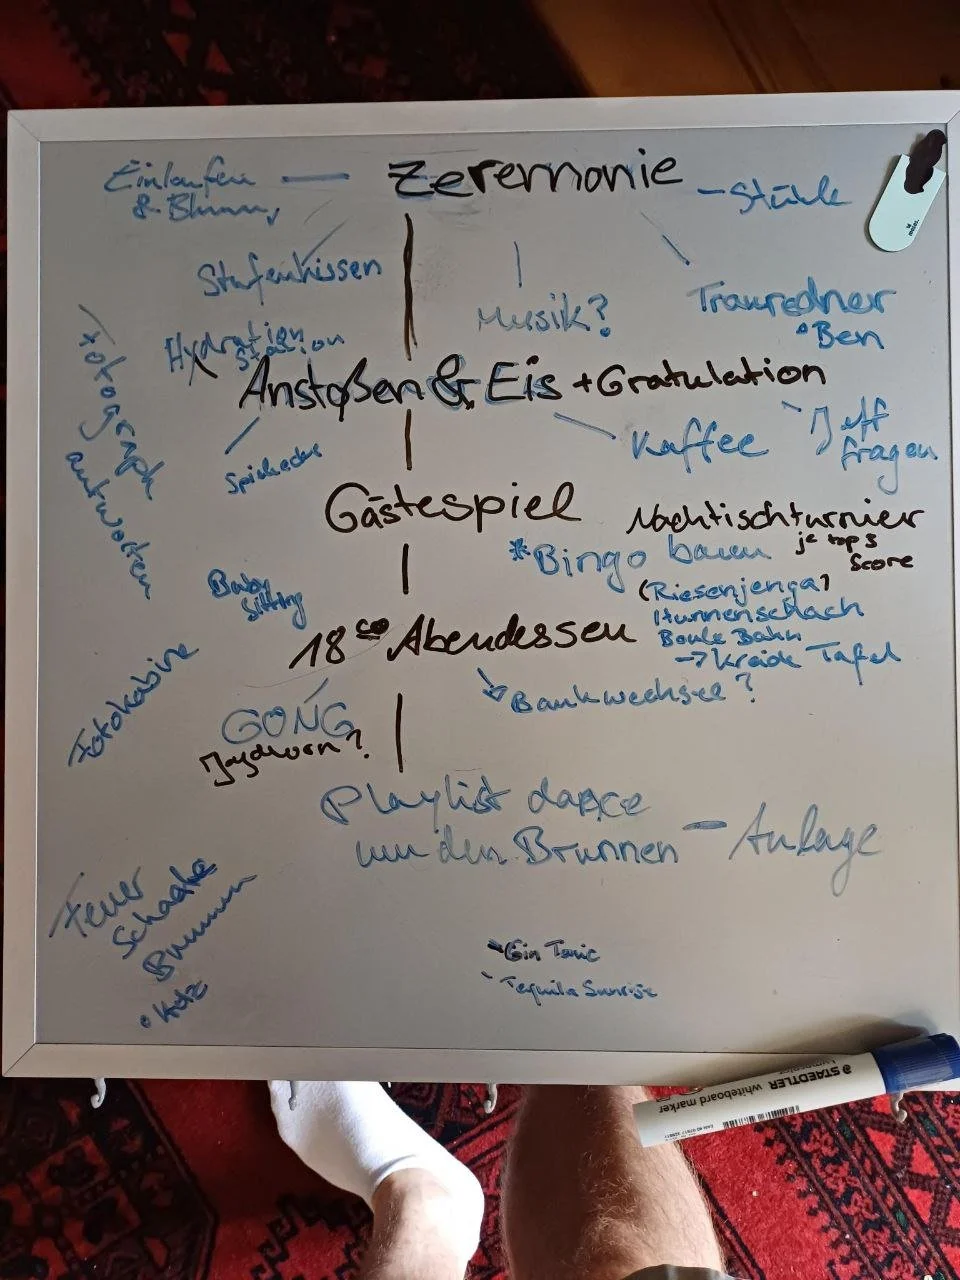 Zeremonie
Einlaufen
& Blumen
- Stühle
Stufenkissen
Musik?
Trauredner
Ben
Hydration
Station
Anstoßen & Eis + Gratulation
Kaffee
Jeff
fragen
Fotograph
antworten
Gästespiel
Nachtischturnier
je top 3
Score
* Bingo bauen
(Riesenjenga)
Boule Bahn
→ Kreide Tafel
Baby
Sitting
18 00 Abendessen
Bankwechsel?
Fotokabine
GONG
Jagdhorn?
Playlist dance
um den Brunnen - Anlage
Feuer
Schaale
Brunnen
• Holz
Gin Tonic
Tequila Sunrise
STAEDTLER
Lumocolor
whiteboard marker